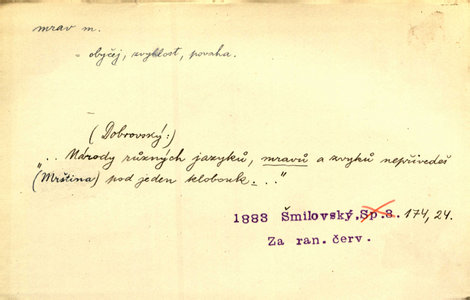 mrav m.
= obyčej, zvyklost, povaha.
(Dobrovský:)
".. Národy různých jazyků, mravů a zvyků nepřivedeš
(Mrština) pod jeden klobouk. .."
1883 Šmilovský, Sp.3. 174, 24.
Za ran. červ.